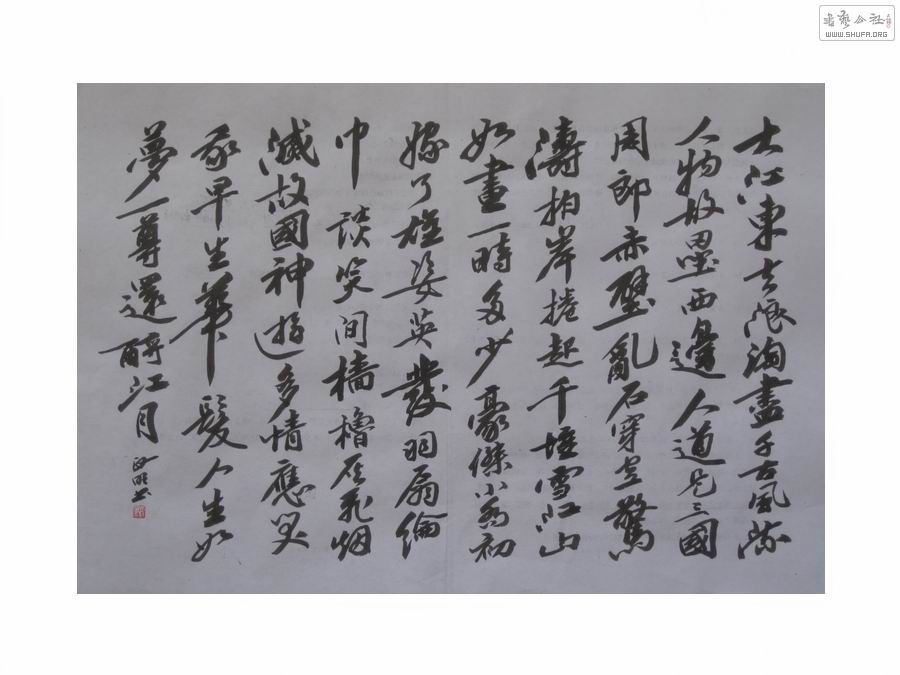 大江東去浪淘盡千古風流
人物故壘西邊人道是三國
周郎赤壁亂石穿空驚
濤拍岸捲起千堆雪江山
如畫一時多少豪傑小喬初
嫁了雄姿英發羽扇綸
巾談笑间檣櫓灰飛烟
滅故國神遊多情應笑
我早生華髮人生如
夢一尊還酹江月
書藝公社
WWW.SHUFA.ORG